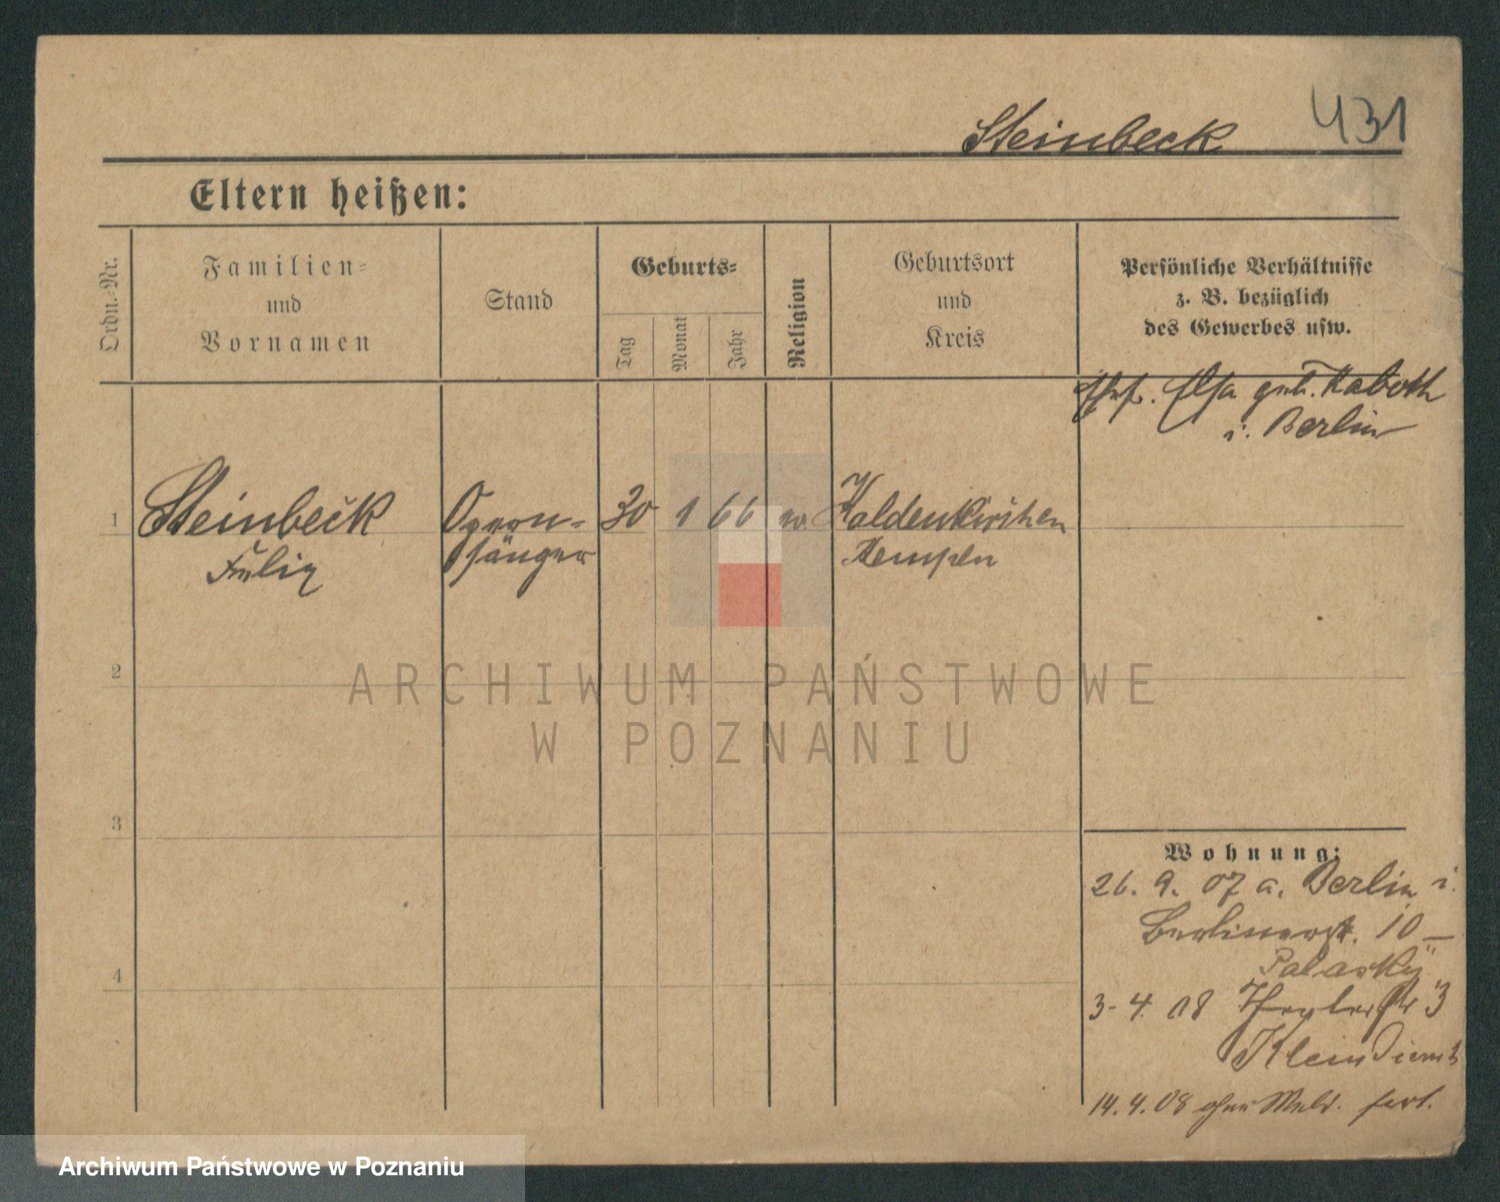 Steinbeck 431
Eltern heißen:
Ordn.-Nr.
Familien-
und
Vornamen
Stand
Geburts-
Tag
Monat
Jahr
Religion
Geburtsort
und
Kreis
Persönliche Verhältnisse
z. B. bezüglich
des Gewerbes usw.
Ehef. Elsa geb. Kaboth
i. Berlin
1 Steinbeck Opern- 30 1 66 Kaldenkirchen
Julius sänger Kempen
2
3
4
Wohnung:
26. 9. 07 a. Berlin i.
Berlinerstr. 10
3-4. 08
14. 4. 08 ohne Meld. fort.
ARCHIWUM PAŃSTWOWE
W POZNANIU
Archiwum Państwowe w Poznaniu